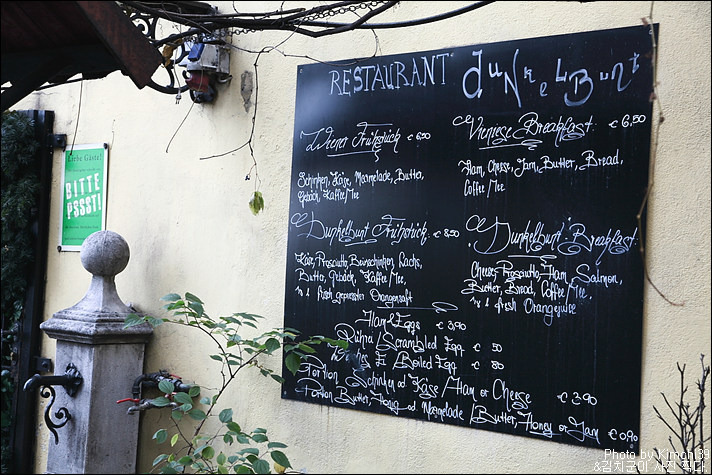 RESTAURANT dUNKELBUNT
Wiener Frühstück € 6,50
Schinken, Käse, Marmelade, Butter,
Gebäck, Kaffee/Tee
Vieniese Breakfast € 6,50
Ham, Cheese, Jam, Butter, Bread,
Coffee/Tee
Dunkelbunt Frühstück € 8,50
Käse, Prosciutto, Beinschinken, Lachs,
Butter, Gebäck, Kaffee/Tee,
1/8 l frisch gepresster Orangensaft
"Dunkelbunt" Breakfast
Cheese, Prosciutto, Ham, Salmon,
Butter, Bread, Coffee/Tee,
1/8 l fresh Orangejuice
Ham & Eggs € 3,90
Rührei/Scrambled Egg €
Ei/Boiled Egg €
Portion Schinken od Käse/Ham or Cheese € 3,90
Portion Butter, Honig od Marmelade/Butter, Honey or Jam € 0,90
Liebe Gäste!
BITTE
PSSST!
Photo by Kimchi39
&김치군의